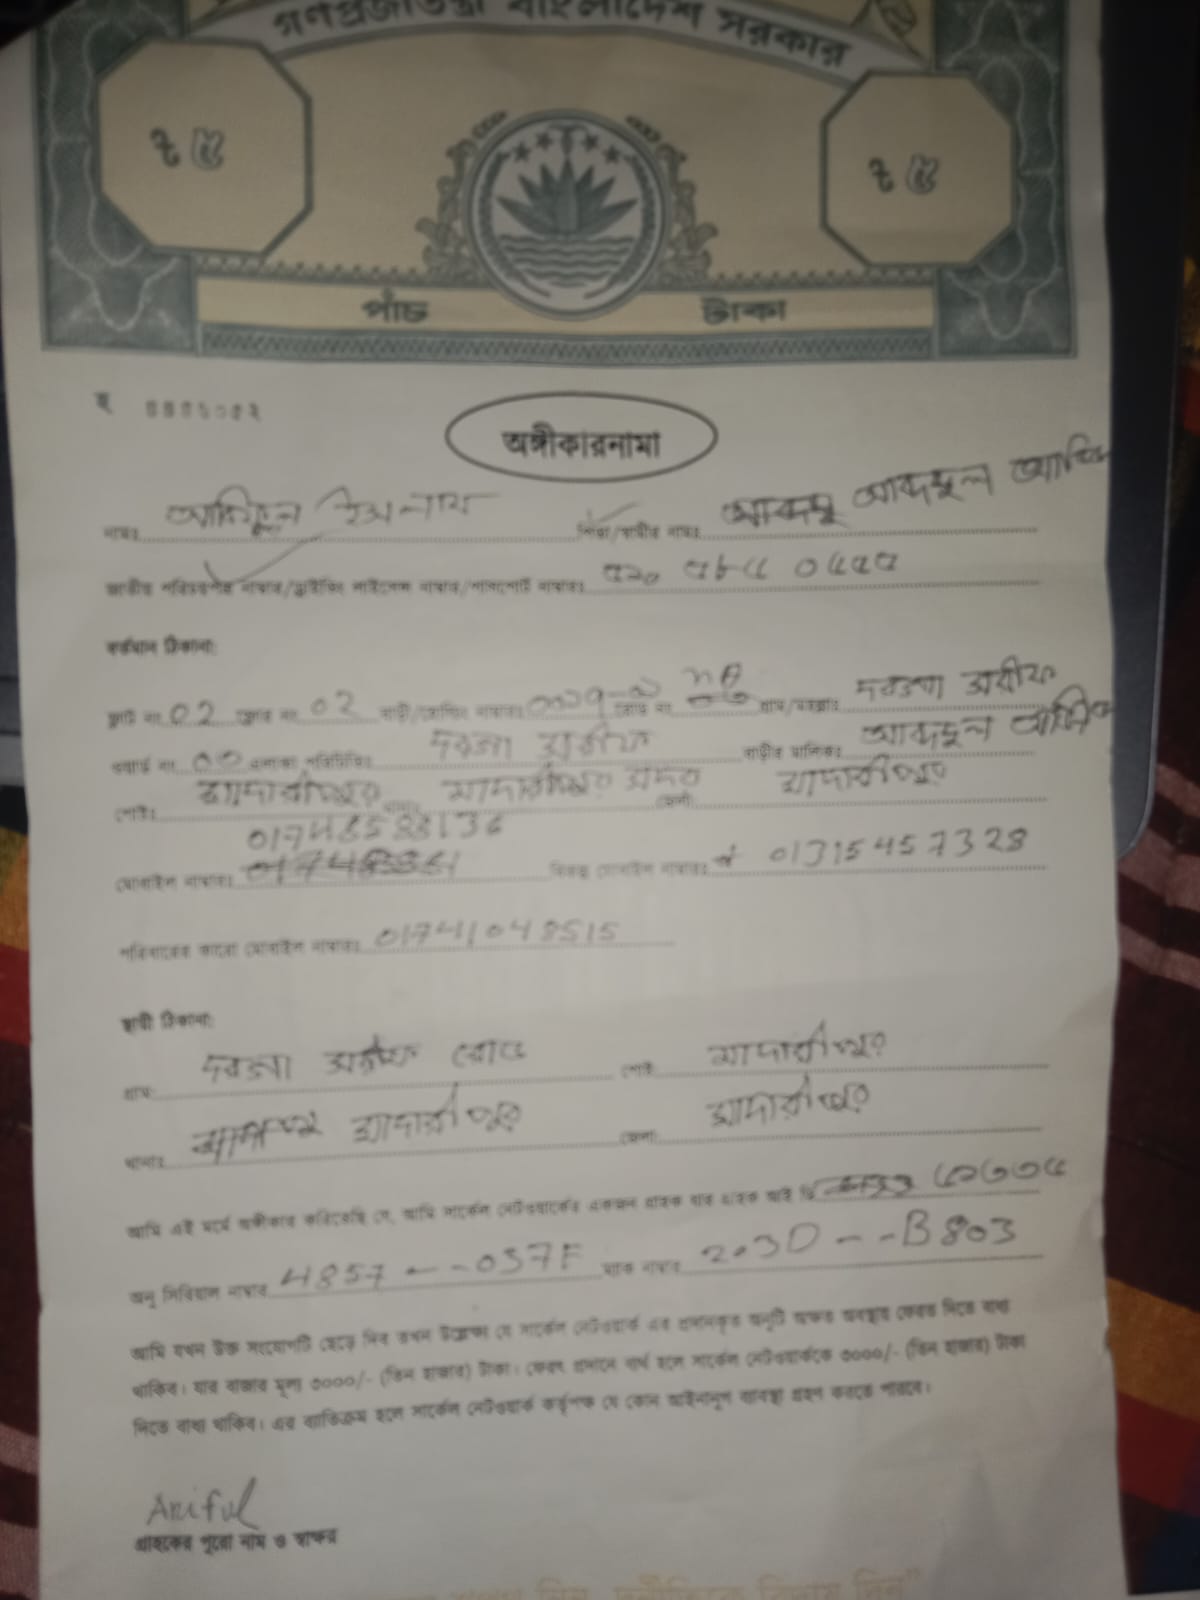 গণপ্রজাতন্ত্রী বাংলাদেশ সরকার
৳ ৫ ৳ ৫
পাঁচ টাকা
অঙ্গীকারনামা
নামঃ আরিফুল ইসলাম পিতা/স্বামীর নামঃ আব্দুল
জাতীয় পরিচয়পত্র নাম্বার/ড্রাইভিং লাইসেন্স নাম্বার/পাসপোর্ট নাম্বারঃ
বর্তমান ঠিকানা:
ফ্লাট নং 02 ফ্লোর নং 02 বাড়ী/হোল্ডিং নাম্বারঃ রোড নং গ্রাম/মহল্লাঃ দরগা শরীফ
ওয়ার্ড নং এলাকা পরিচিতিঃ দরগা শরীফ বাড়ীর মালিকঃ আব্দুল
পোষ্টঃ মাদারীপুর থানাঃ মাদারীপুর সদর জেলা: মাদারীপুর
মোবাইল নাম্বারঃ বিকল্প মোবাইল নাম্বারঃ 01315457328
পরিবারের কারো মোবাইল নাম্বারঃ 01741048515
স্থায়ী ঠিকানা:
গ্রাম: দরগা শরীফ রোড পোষ্ট: মাদারীপুর
থানাঃ মাদারীপুর জেলা: মাদারীপুর
আমি এই মর্মে অঙ্গীকার করিতেছি যে, আমি সার্কেল নেটওয়ার্কের একজন গ্রাহক যার গ্রাহক আই ডি
অনু সিরিয়াল নাম্বার 4857 -- 037F ম্যাক নাম্বার 203D -- B803
আমি যখন উক্ত সংযোগটি ছেড়ে দিব তখন উল্লেক্ষ্য যে সার্কেল নেটওয়ার্ক এর প্রদানকৃত অনুটি অক্ষত অবস্থায় ফেরত দিতে বাধ্য
থাকিব। যার বাজার মূল্য ৩০০০/- (তিন হাজার) টাকা। ফেরৎ প্রদানে ব্যর্থ হলে সার্কেল নেটওয়ার্ককে ৩০০০/- (তিন হাজার) টাকা
দিতে বাধ্য থাকিব। এর ব্যতিক্রম হলে সার্কেল নেটওয়ার্ক কর্তৃপক্ষ যে কোন আইনানুগ ব্যবস্থা গ্রহণ করতে পারবে।
Ariful
গ্রাহকের পুরো নাম ও স্বাক্ষর